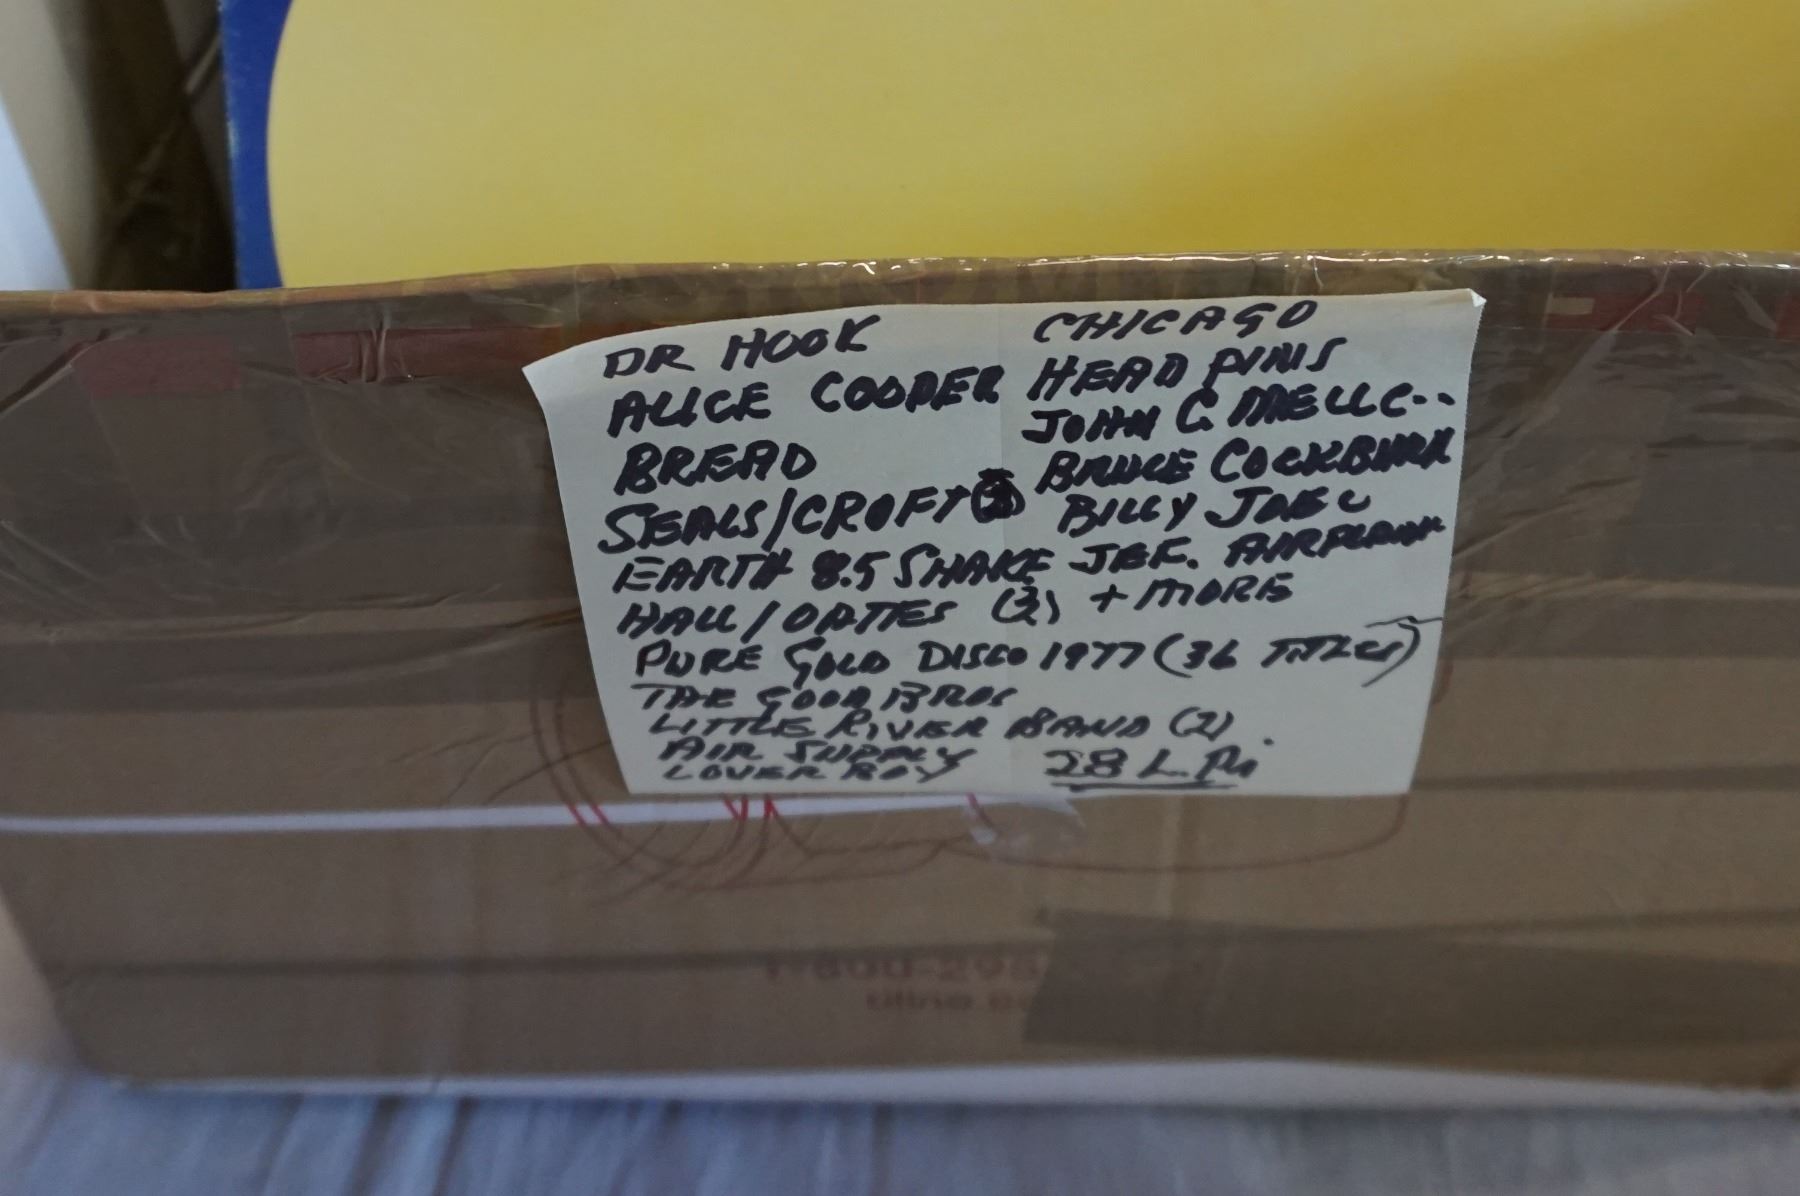 DR HOOK
ALICE COOPER
BREAD
SEALS/CROFT
EARTH 8.5 SHAKE
HALL/OATES (2)
CHICAGO
HEAD PINS
JOHN C. MELLC..
BRUCE COCKBURN
BILLY JOEL
JEF. AIRPLANE
+ MORE
PURE GOLD DISCO 1977 (36 TITLES)
THE GOOD BROS
LITTLE RIVER BAND (2)
AIR SUPPLY
LOVER BOY
28 L.Ps.
1-800-295